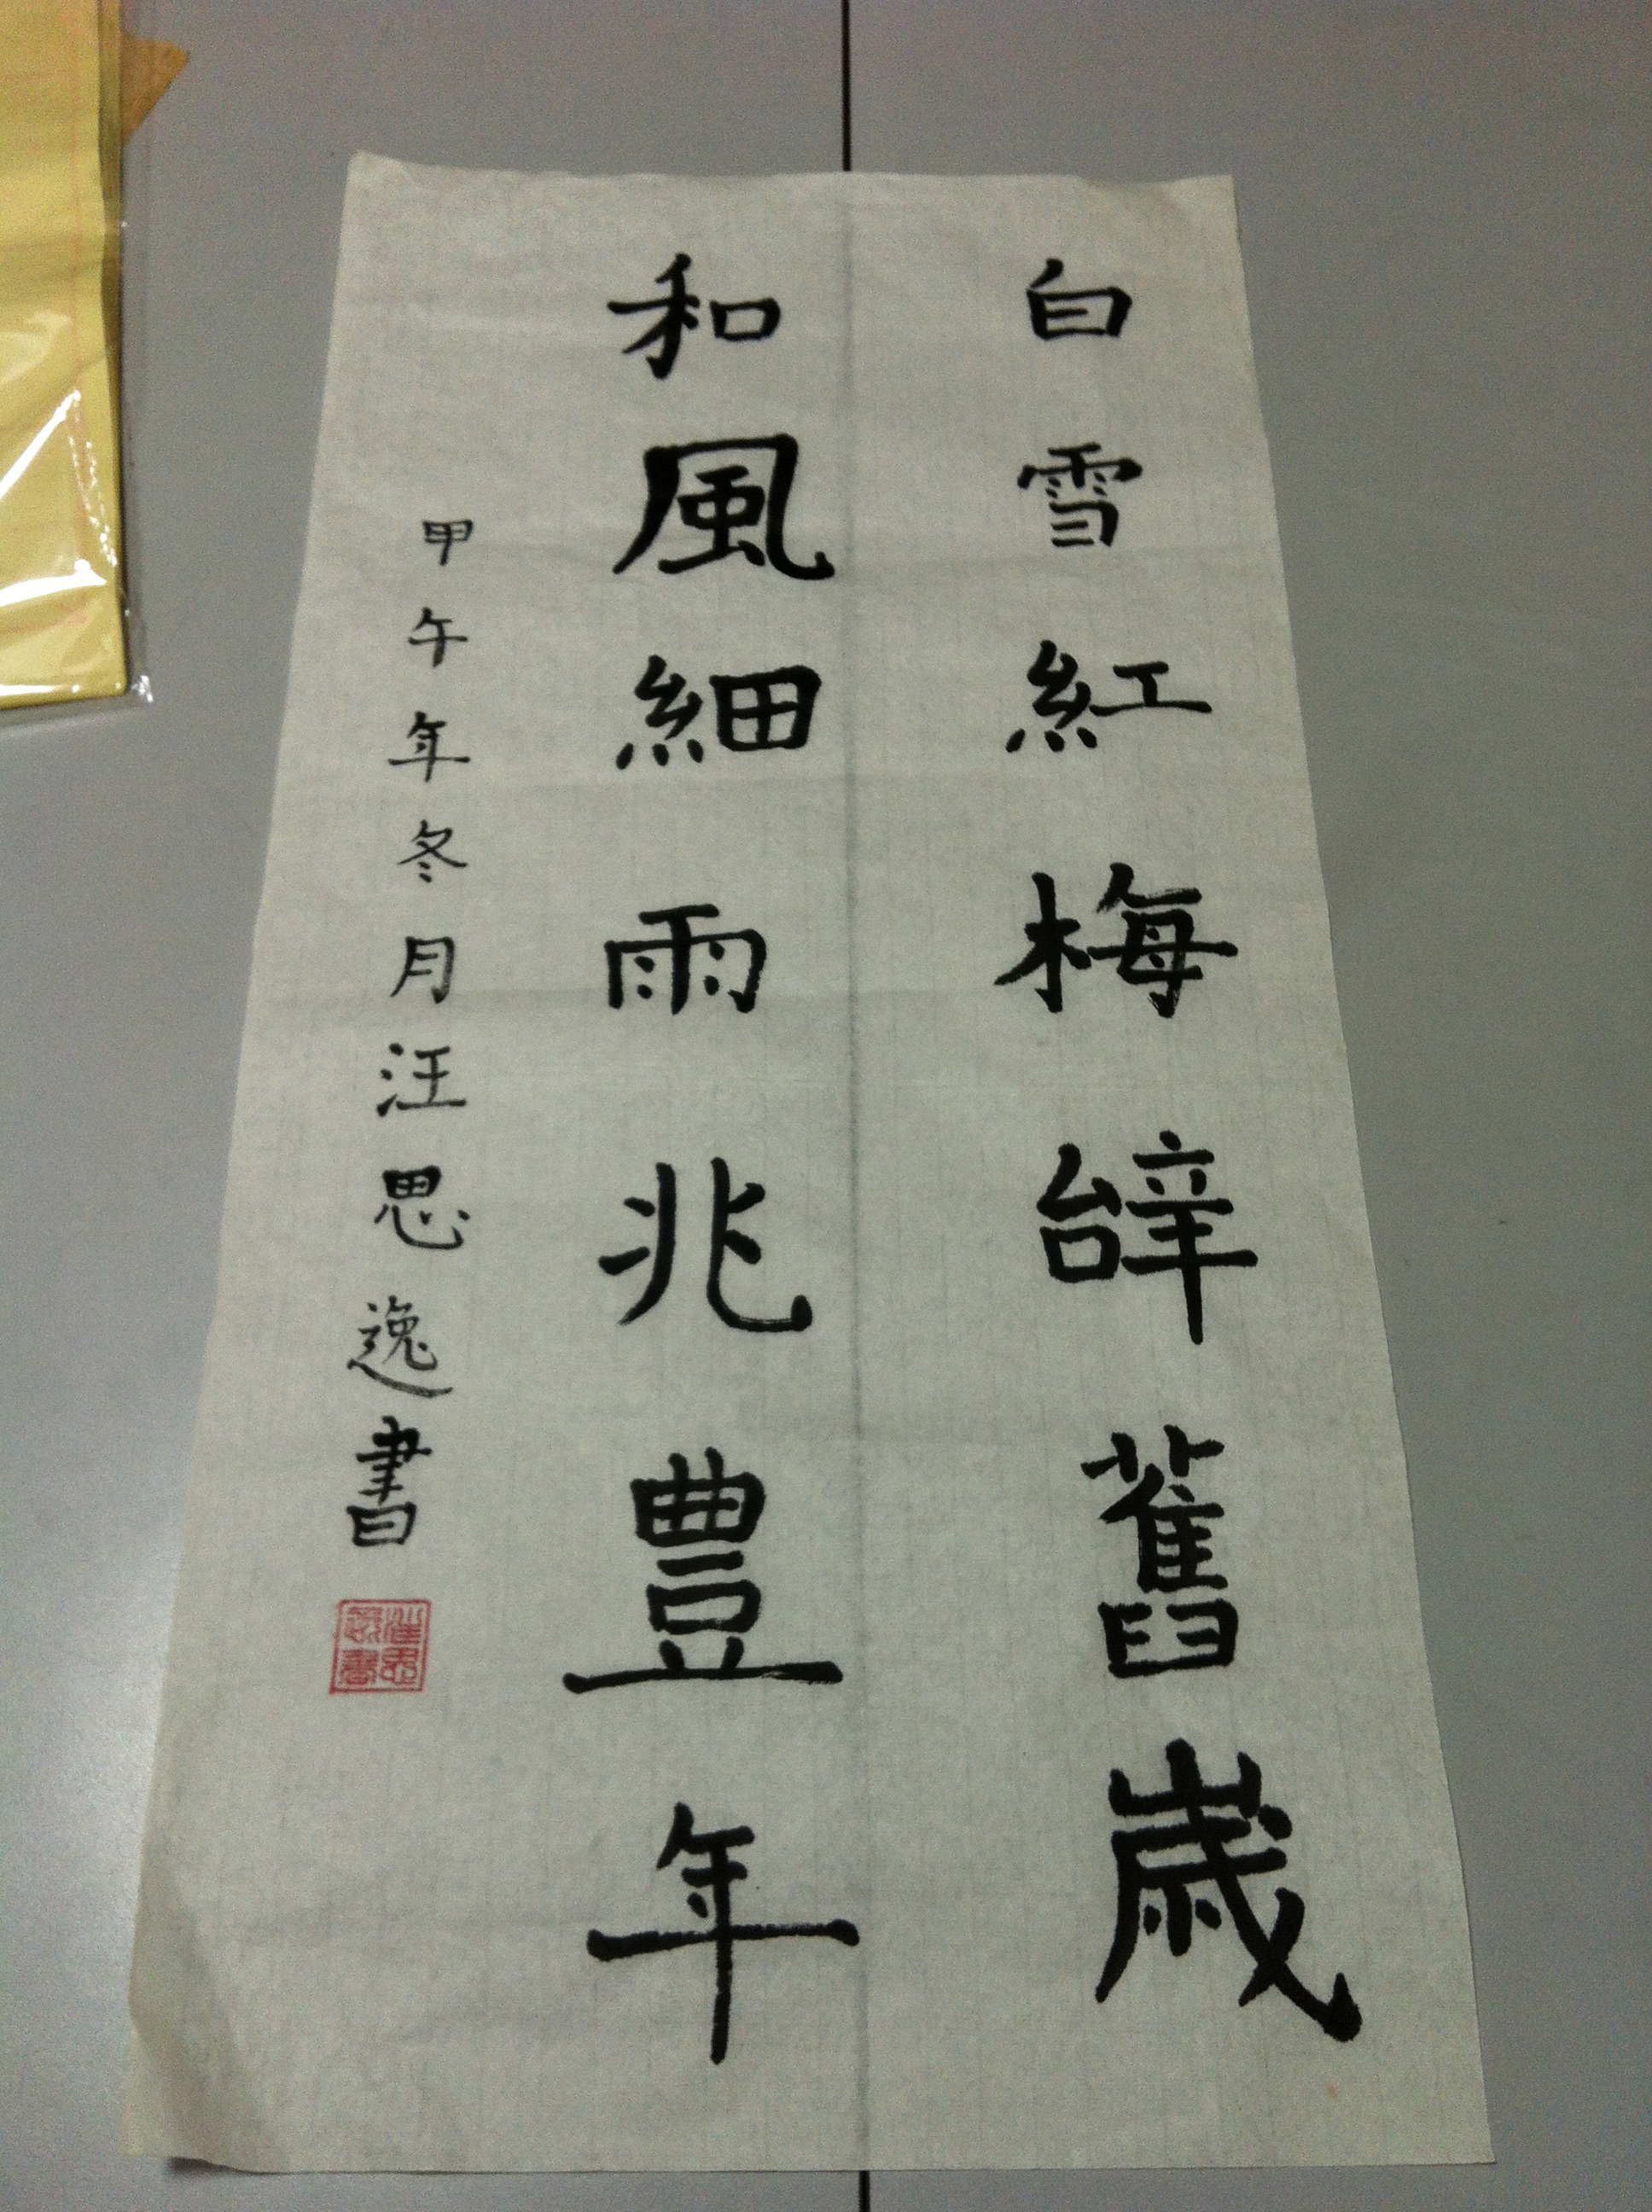 白雪紅梅辤舊歲
和風細雨兆豐年
甲午年冬月汪思逸書